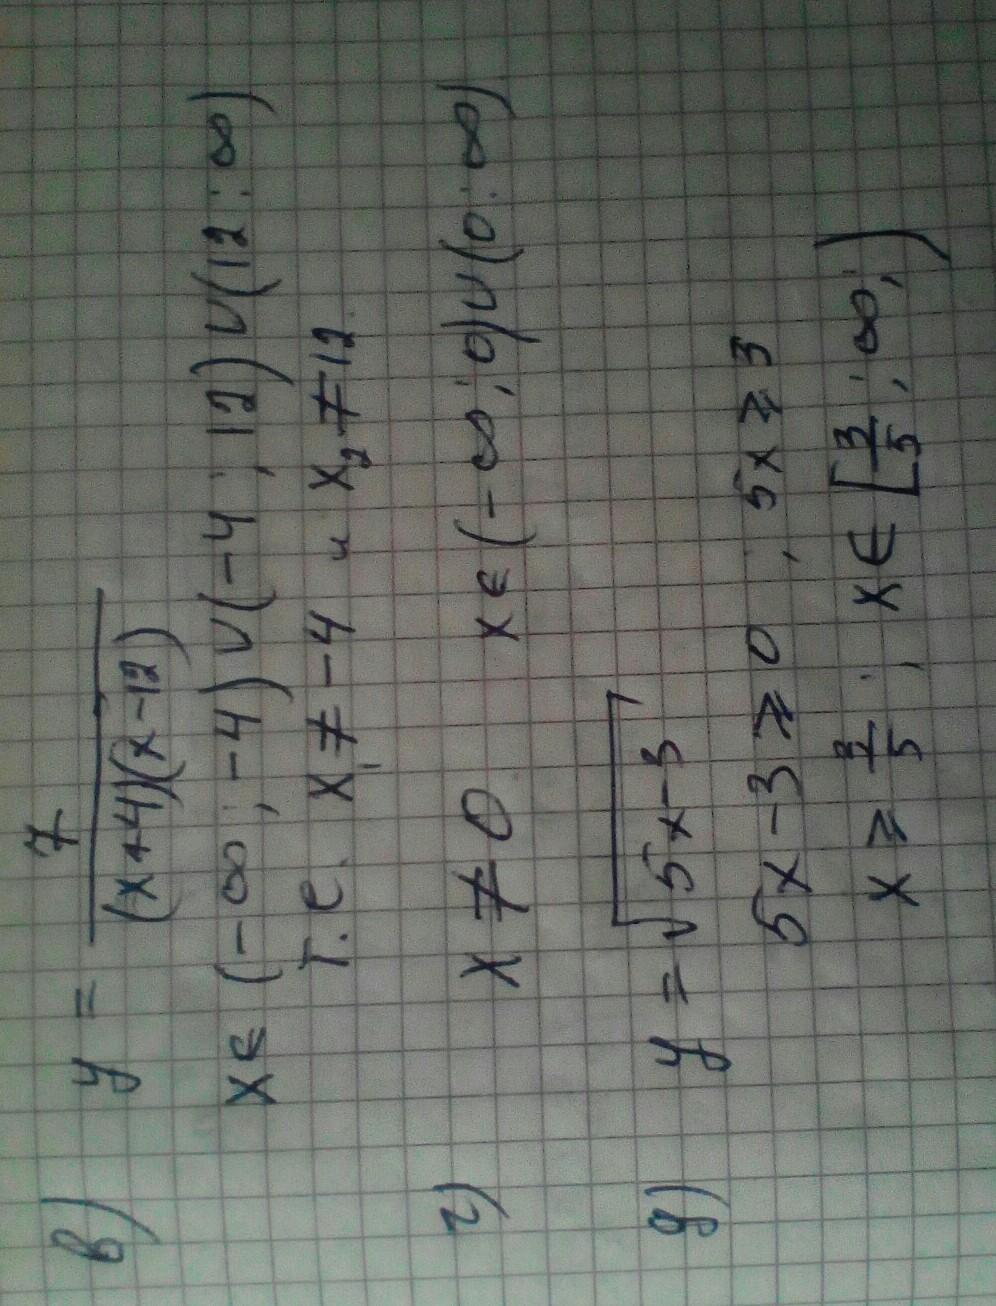 в) y = 7/((x+4)(x-12))
x∈ (-∞; -4) ∪ (-4; 12) ∪ (12; ∞)
т.е. x₁ ≠ -4 и x₂ ≠ 12
г) x ≠ 0 x∈(-∞; 0)∪(0; ∞)
д) y = √(5x-3)
5x-3 ⩾ 0, 5x ⩾ 3
x ⩾ 3/5; x∈ [3/5; ∞;)